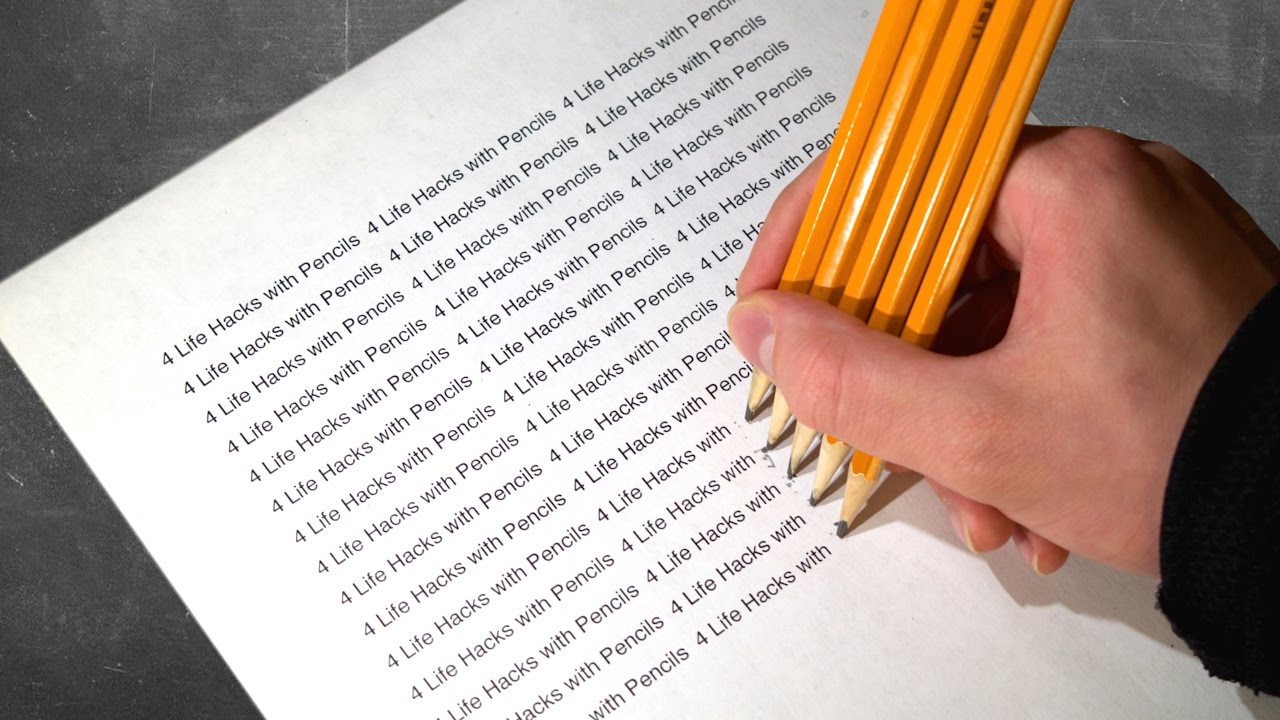 4 Life Hacks with Pencils 4 Life Hacks with Pencils 4 Life Hacks with Pencils
4 Life Hacks with Pencils 4 Life Hacks with Pencils 4 Life Hacks with Pencils
4 Life Hacks with Pencils 4 Life Hacks with Pencils 4 Life Hacks with Pencils
4 Life Hacks with Pencils 4 Life Hacks with Pencils 4 Life Hacks with Pencils
4 Life Hacks with Pencils 4 Life Hacks with Pencils 4 Life Hacks with Pencils
4 Life Hacks with Pencils 4 Life Hacks with Pencils 4 Life Hacks with
4 Life Hacks with Pencils 4 Life Hacks with Pencils 4 Life
4 Life Hacks with Pencils 4 Life Hacks with Pencils 4
4 Life Hacks with Pencils 4 Life Hacks with Pencils
4 Life Hacks with Pencils 4 Life Hacks with
4 Life Hacks with Pencils 4 Life Hacks with
4 Life Hacks with Pencils 4 Life Hacks with
4 Life Hacks with Pencils 4 Life Hacks with
Hacks with Pencils 4 Life Hacks with
with Pencils 4 Life Hacks with